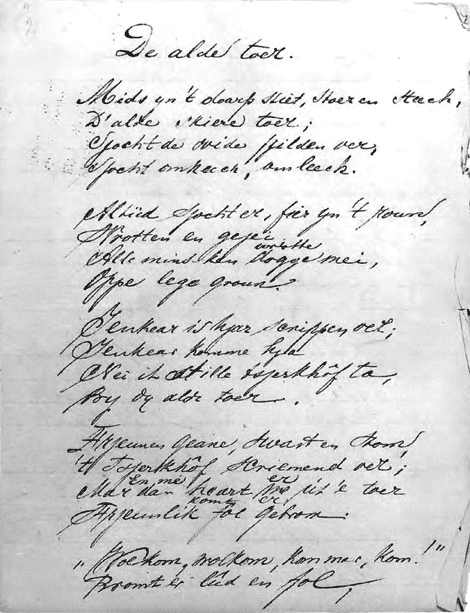 De alde toer.
Mids yn't doarp stiet, stoer en
D'alde skiere toer;
Sjocht de wide fjilden oer,
Sjocht omheech, omleech.
Altiid sjocht er, fier yn't roun',
Wrotten en gejei
wrotte
Alle minsken mei,
Oppe lege groun'.
Ienkear is hjar scrippen oer;
Ienkear komme hja
Nei it stille tsjerkhôf ta,
By dy alde toer.
Frjeunen geane, swart en stom,
't Tsjerkhôf skriemend oer;
En me er
Mar dan heart út 'e toer
komt er
Frjeunlik fol gebrom:
"Wolkom, wolkom, kom mar, kom!"
Bromt er lûd en fol,